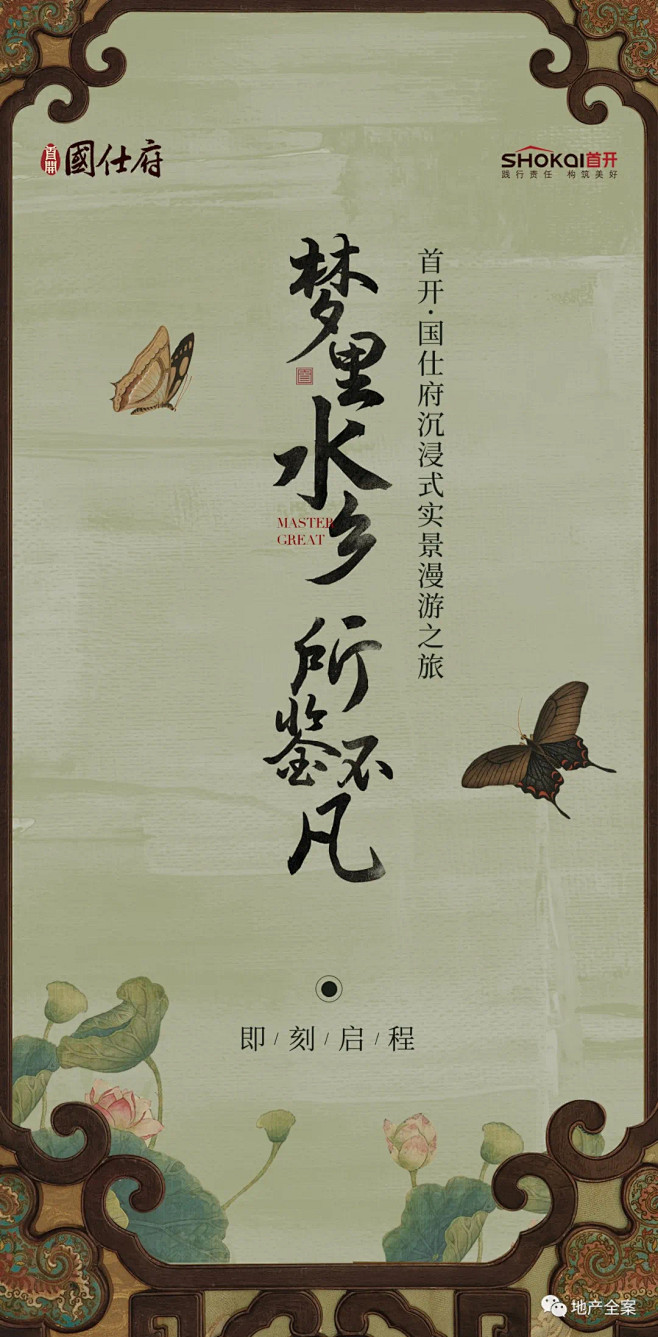 首開 國仕府
SHOKAI首开
践行责任 构筑美好
梦里水乡
所鉴不凡
首开·国仕府沉浸式实景漫游之旅
MASTER
GREAT
即/刻/启/程
地产全案